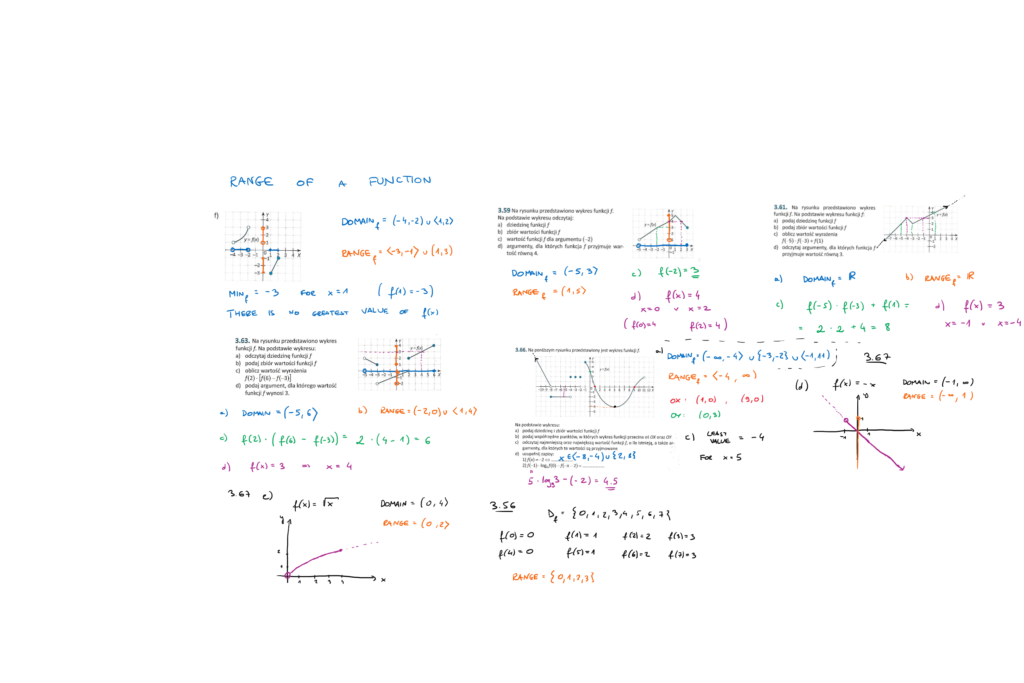 RANGE OF A FUNCTION
f)
y=f(x)
DOMAIN_f = (-4,-2) ∪ ⟨1,2⟩
RANGE_f = ⟨-3,-1⟩ ∪ (1,3)
MIN_f = -3 FOR x=1 ( f(1)=-3 )
THERE IS NO GREATEST VALUE OF f(x)
3.63. Na rysunku przedstawiono wykres
funkcji f. Na podstawie wykresu:
a) odczytaj dziedzinę funkcji f
b) podaj zbiór wartości funkcji f
c) oblicz wartość wyrażenia
f(2) · [f(6) – f(–3)]
d) podaj argument, dla którego wartość
funkcji f wynosi 3.
y=f(x)
a) DOMAIN = (-5,6⟩
b) RANGE = (-2,0) ∪ ⟨1,4⟩
c) f(2) · ( f(6) - f(-3) ) = 2 · (4-1) = 6
d) f(x)=3 x=4
3.67 e)
f(x) = √x
DOMAIN = (0,4⟩
RANGE = (0,2⟩
y
x
3.59 Na rysunku przedstawiono wykres funkcji f.
Na podstawie wykresu odczytaj:
a) dziedzinę funkcji f
b) zbiór wartości funkcji f
c) wartość funkcji f dla argumentu (-2)
d) argumenty, dla których funkcja f przyjmuje war-
tość równą 4.
y=f(x)
DOMAIN_f = (-5,3⟩
RANGE_f = (1,5⟩
c) f(-2)=3
d) f(x)=4
x=0 ∨ x=2
( f(0)=4 f(2)=4 )
3.66. Na poniższym rysunku przedstawiony jest wykres funkcji f.
y=f(x)
Na podstawie wykresu:
a) podaj dziedzinę i zbiór wartości funkcji f
b) podaj współrzędne punktów, w których wykres funkcji przecina oś OX oraz OY
c) odczytaj najmniejszą oraz największą wartość funkcji f, o ile istnieją, a także ar-
gumenty, dla których te wartości są przyjmowane
d) uzupełnij zapisy:
1) f(x) = –2 ⇔ x ∈ (-8,-4) ∪ {2,8}
5 · log₉3 - (-2) = 4.5
a) DOMAIN_f = (-∞,-4) ∪ {-3,-2} ∪ (-1,11)
RANGE_f = ⟨-4, ∞)
OX: (1,0) , (9,0)
OY: (0,3)
c) LEAST VALUE = -4
FOR x=5
3.56
D_f = {0,1,2,3,4,5,6,7}
f(0)=0 f(1)=1 f(2)=2 f(3)=3
f(4)=0 f(5)=1 f(6)=2 f(7)=3
RANGE = {0,1,2,3}
3.61. Na rysunku przedstawiono wykres
funkcji f. Na podstawie wykresu funkcji f:
a) podaj dziedzinę funkcji f
b) podaj zbiór wartości funkcji f
c) oblicz wartość wyrażenia
f(–5) · f(–3) + f(1)
d) odczytaj argumenty, dla których funkcja f
przyjmuje wartość równą 3.
y=f(x)
a) DOMAIN_f = ℝ
b) RANGE_f = ℝ
c) f(-5) · f(-3) + f(1) =
= 2 · 2 + 4 = 8
d) f(x) = 3
x=-1 ∨ x=-4
3.67
(d) f(x) = -x
DOMAIN = (-1,∞)
RANGE = (-∞,1)
x